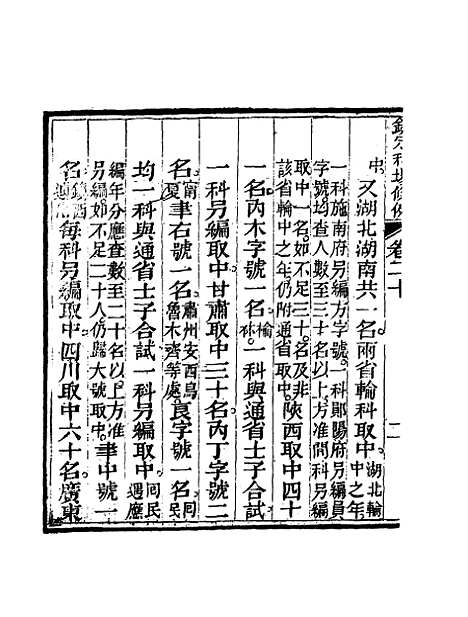 欽定科場條例 卷二十 二
中。又湖北湖南共一名兩省輪科取中。湖北輪中之年
一科施南府另編方字號。一科鄖陽府另編員
字號均查人數至三十名以上。方准間科另編
取中。如不足三十名。及非
該省輪中之年仍附通省取中。陝西取中四十
一名內木字號一名榆林。一科與通省士子合試
一科另編取中甘肅取中三十名內丁字號二
名甯夏聿右號一名肅州安西烏魯木齊等處。良字號一名回民
均一科與通省士子合試一科另編取中。回民遇應
編年分應查數至二十名以上。方准
另編。如不足二十人仍歸大號取中。聿中號一
名鎮西迪化。每科另編取中。四川取中六十名。廣東